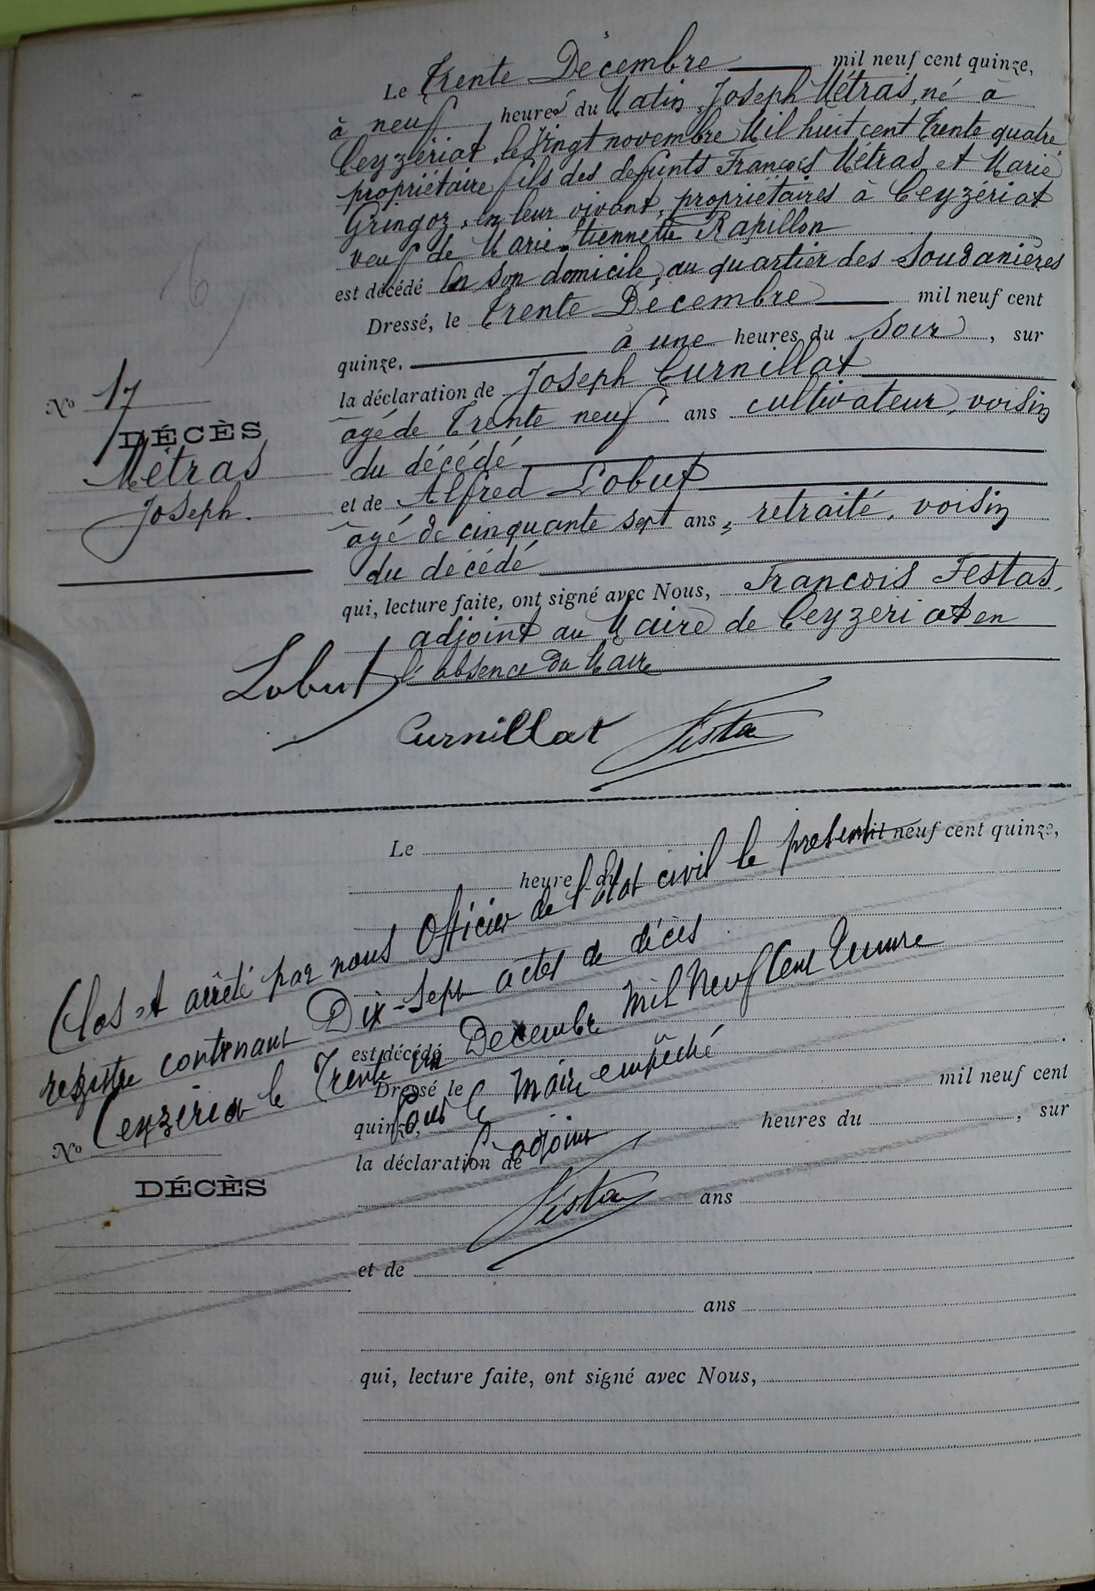 Le Trente Décembre mil neuf cent quinze,
à neuf heures du Matin, Joseph Métras, né à
Ceyzériat, le Vingt novembre Mil huit cent Trente quatre
propriétaire fils des defunts François Métras et Marie
Gringoz, en leur vivant, propriétaires à Ceyzériat
veuf de Marie Etiennette Rapillon
est décédé en son domicile, au quartier des Soudanières
Dressé, le Trente Décembre mil neuf cent
quinze, à une heures du Soir, sur
la déclaration de Joseph Curnillat
agé de Trente neuf ans cultivateur, voisin
du décédé
et de Alfred Lobut
âgé de cinquante sept ans, retraité, voisin
du décédé
qui, lecture faite, ont signé avec Nous, François Festas,
adjoint au Maire de Ceyzériat en
l'absence du Maire
No 17
DÉCÈS
Métras
Joseph.
Lobut
Curnillat Festas
Le mil neuf cent quinze,
heure du
Clos et arrêté par nous Officier de l'état civil le présent
registre contenant Dix-sept actes de décès
Ceyzériat le Trente un Decembre Mil Neuf Cent Quinze
Pour le maire empêché
l'adjoint
Festas
est décédé
Dressé le mil neuf cent
quinze, heures du , sur
la déclaration de
No
DÉCÈS
ans
et de
ans
qui, lecture faite, ont signé avec Nous,